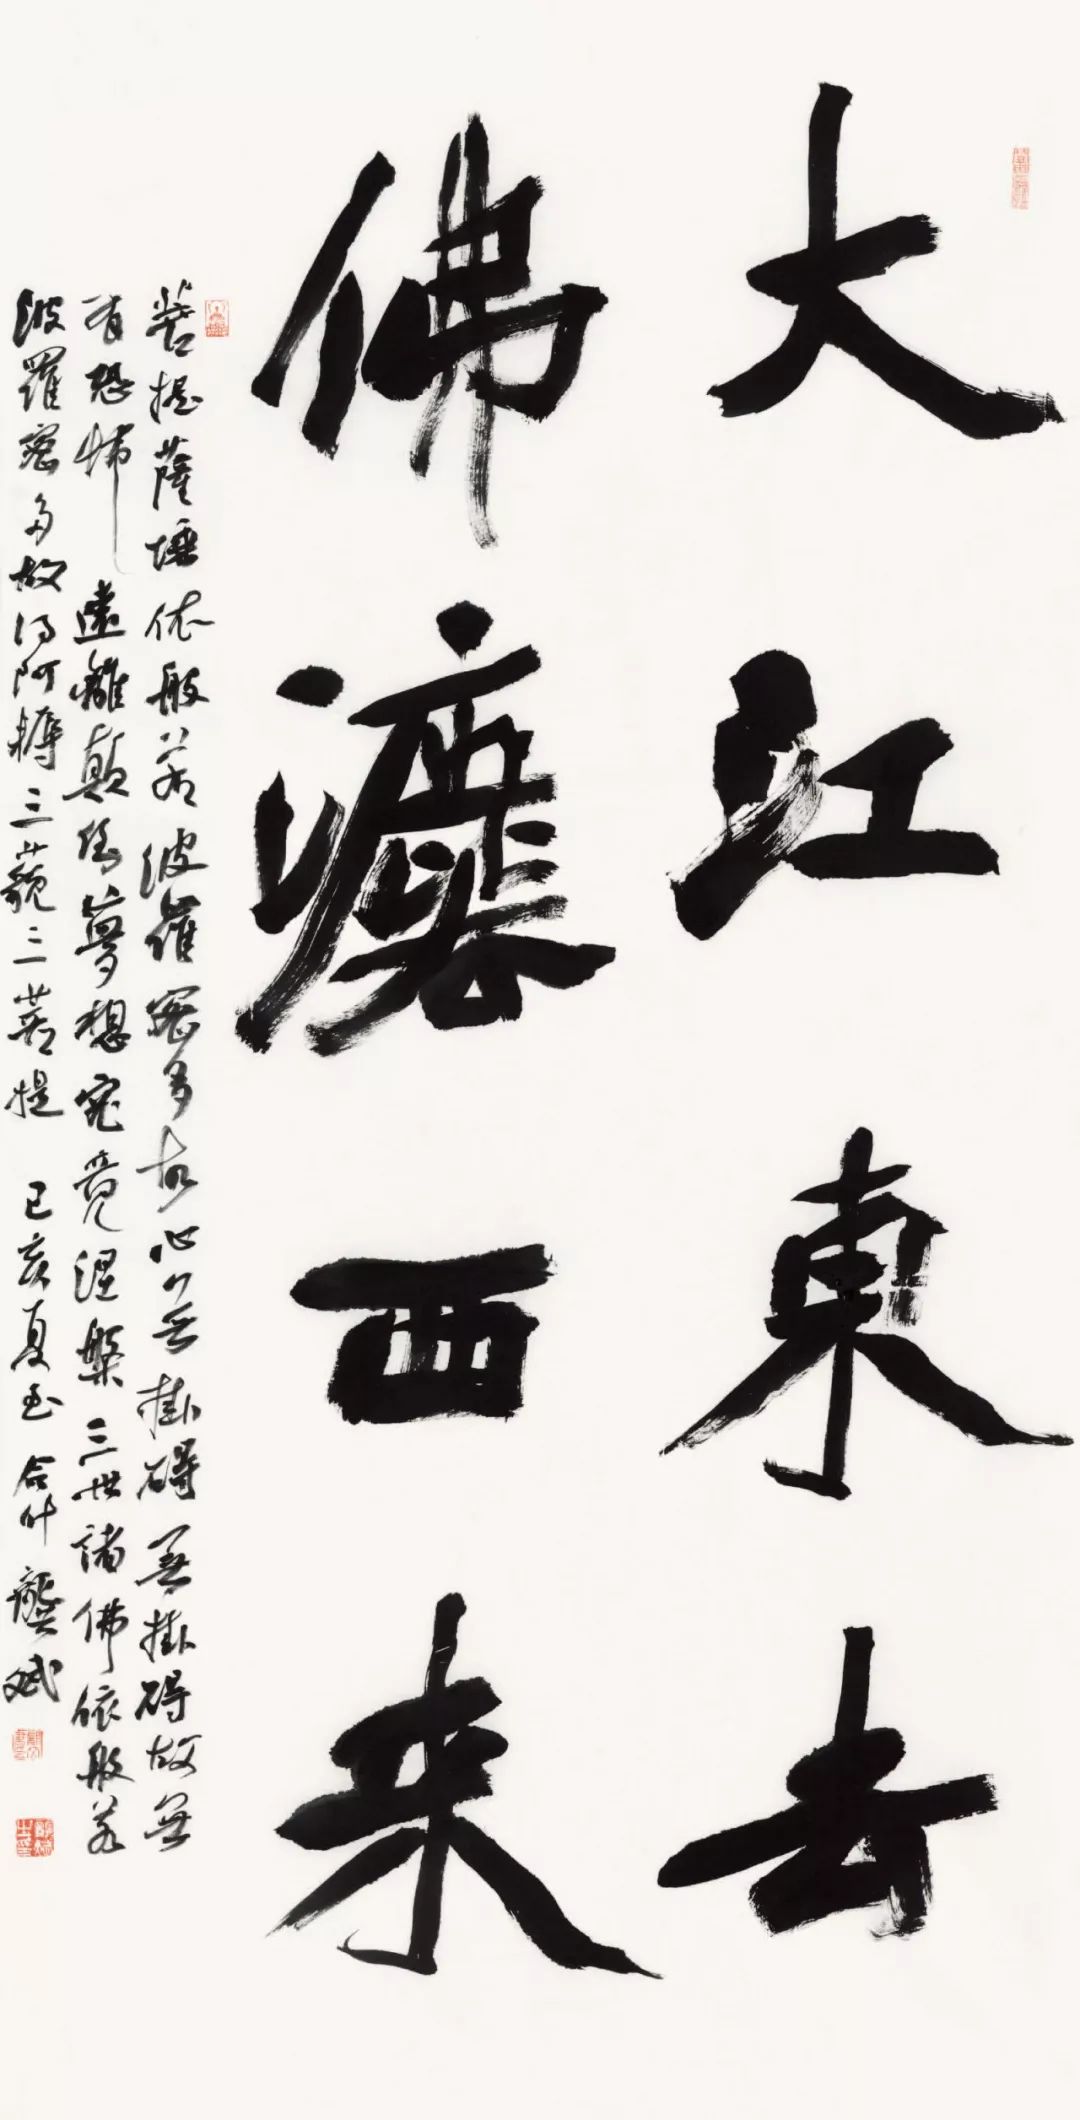 大江東去
佛灋西来
菩提薩埵依般若波羅蜜多故心無掛碍無掛碍故無
有恐怖遠離顛倒夢想究竟涅槃三世諸佛依般若
波羅蜜多故得阿耨三藐三菩提 己亥夏至 合什 龔斌